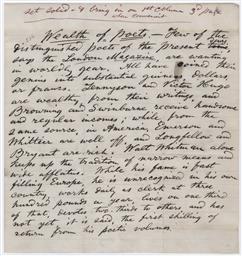 set Solid - & bring in on 1st Column 3d page
when convenient
Wealth of Poets. - Few of the
Distinguished poets of the present time,
says the London Magazine, are wanting
in worldly gear. All have coined their
genius into substantial guineas, dollars
or francs. Tennyson and Victor Hugo
are wealthy from their writings, and
Browning and Swinburne receive handsome
and regular incomes; while from the
same source, in America, Emerson and
Whittier are well off, and Longfellow and
Bryant are rich. Walt Whitman alone
keeps up the tradition of narrow means and
wide afflatus. While his fame is fast
filling Europe, he is unrecognized in his own
country, works daily as clerk at three
hundred pounds a year, lives on one third
of that, devotes two thirds to others and has
not yet had the first shilling of
return from his poetic volumes.